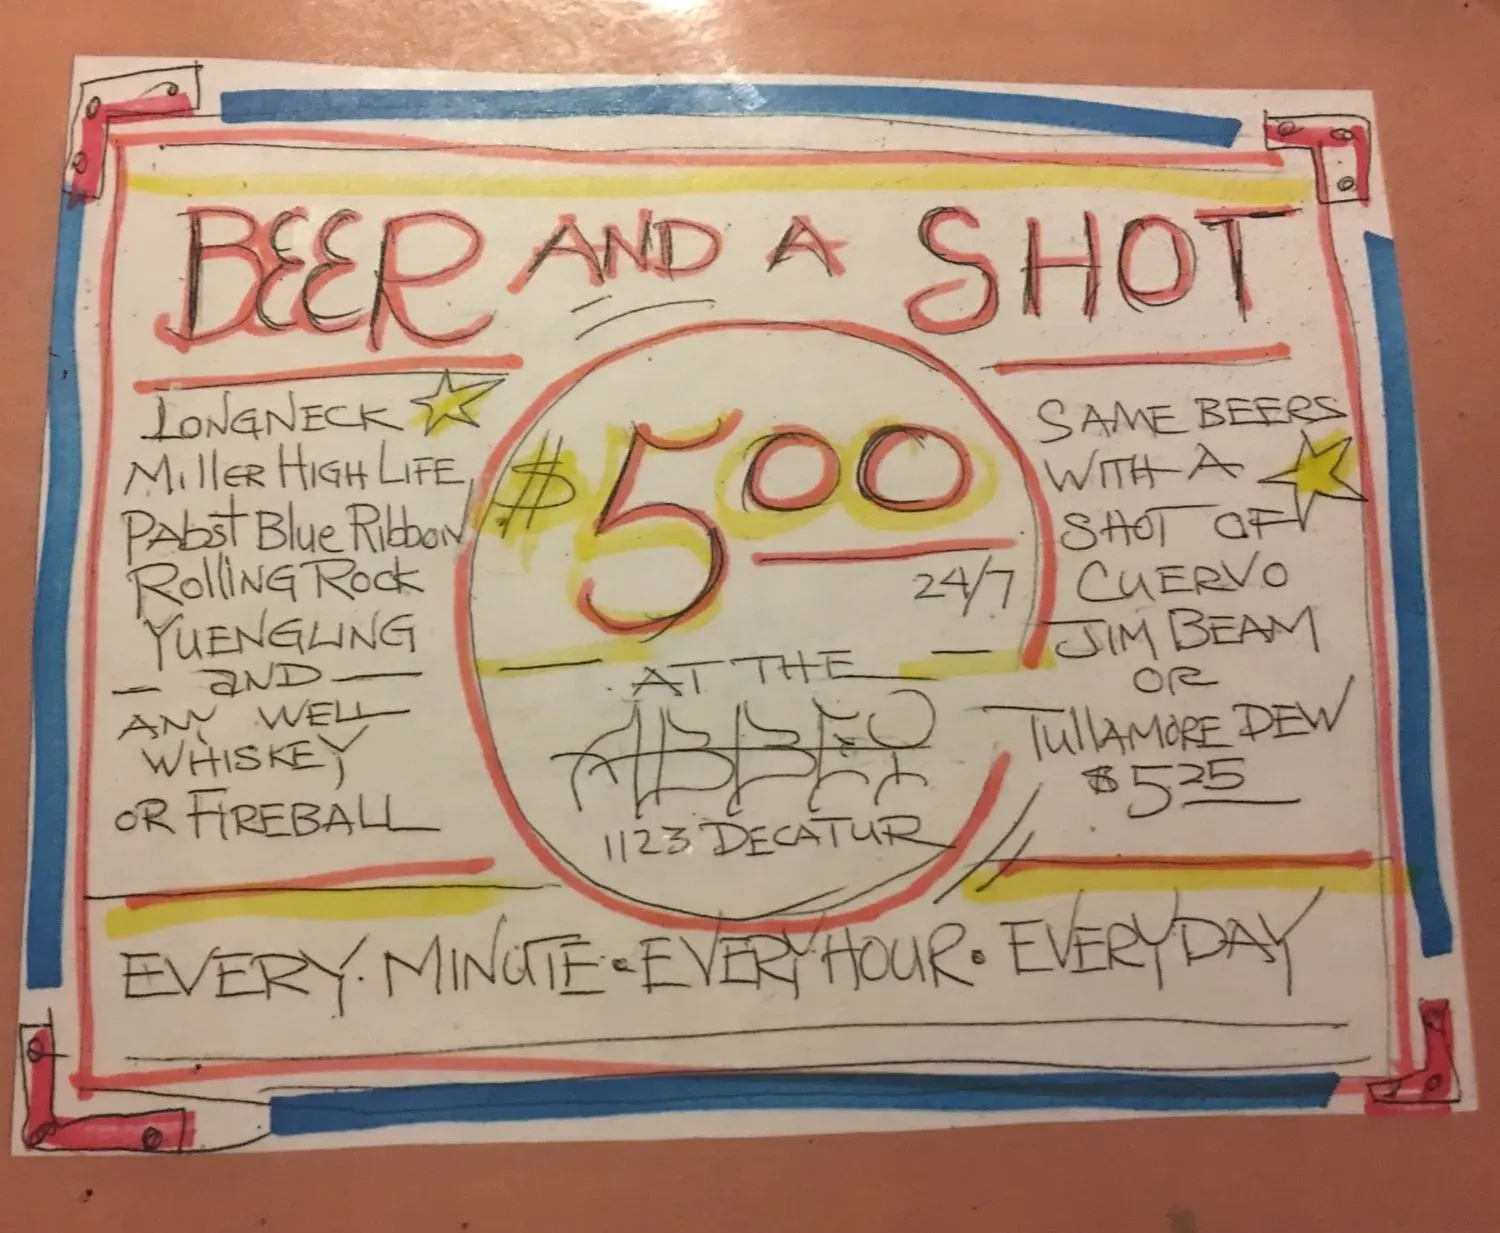 BEER AND A SHOT
LONGNECK
MillER HIGH LIFE
PAbst Blue Ribbon
Rolling Rock
YUENGLING
- AND -
ANY WELL
WHISKEY
OR FIREBALL
$5.00
24/7
- AT THE -
ABBEY
1123 DECATUR
SAME BEERS
WITH A
SHOT OF
CUERVO
JIM BEAM
OR
TUllAMORE DEW
$5.25
EVERY · MINUTE · EVERY HOUR · EVERY DAY